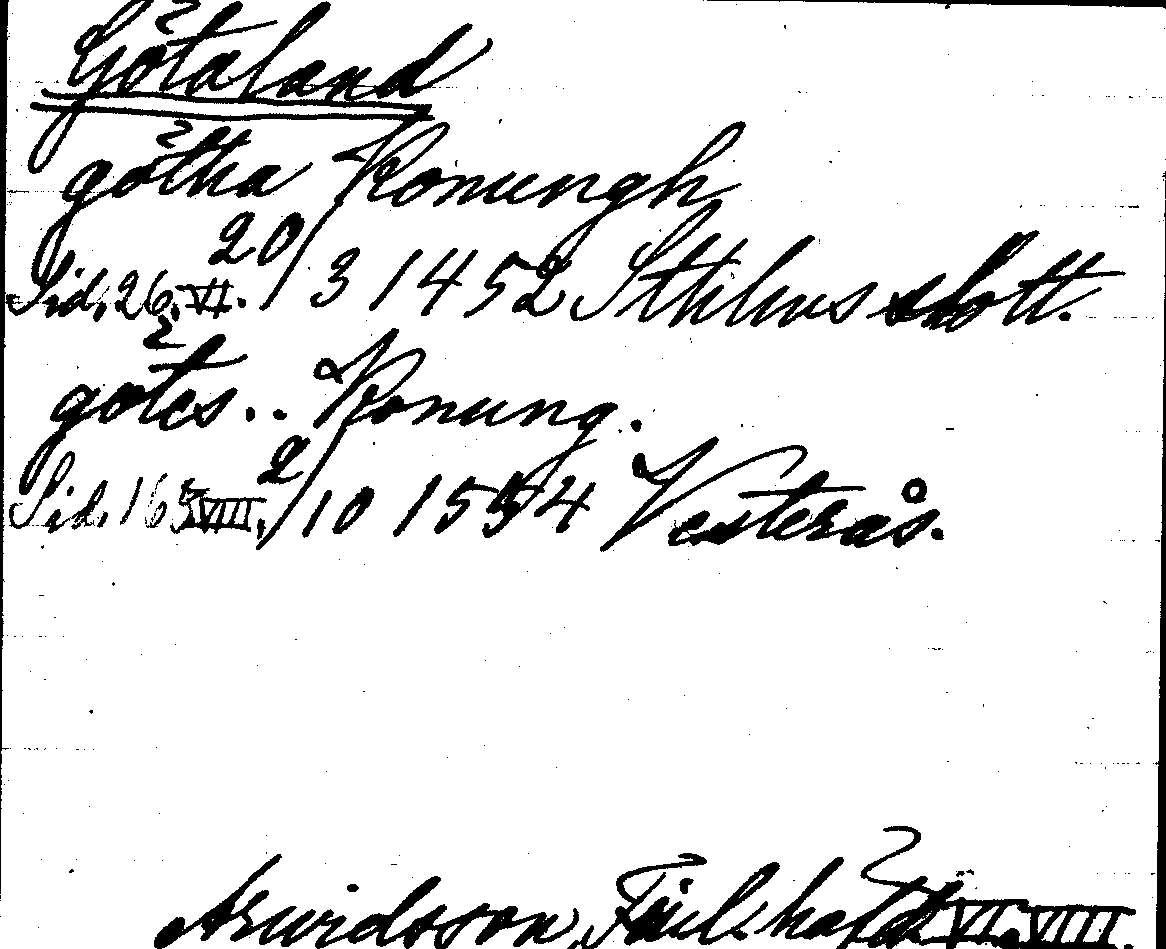 Götaland
götha Konungh
Sid. 26. VI. 20/3 1452 Sthlms slott.
götes.. Konung.
Sid. 165 VIII. 2/10 1554 Vesterås.
Arwidsson, VI. VIII